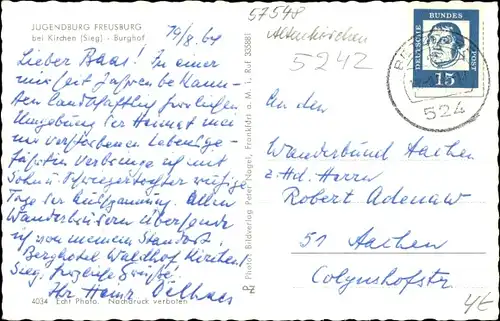 JUGENDBURG FREUSBURG
bei Kirchen (Sieg) - Burghof
19/8.64
57548
Altenkirchen
5242
DEUTSCHE BUNDESPOST
15
524
Lieber Baas! In einer
mir seit Jahren bekann-
ten landschaftlich herrlichen
Umgebung der Heimat mei
ner verstorbenen Lebensge-
fährtin verbringe ich mit
Sohn u. Schwiegertochter ruhige
Tage der Entspannung. Allen
Wanderbrüdern übersende
ich von meinem Standort
Berghotel Waldhof Kirchen
Sieg, herzliche Grüße!
Ihr Heinz Delhaes
4034 Echt Photo. Nachdruck verboten
Photo Bildverlag Peter Nagel, Frankfurt a. M. 1, Ruf 355881
An den
Wanderbund Aachen
z.Hd. Herrn
Robert Adenaw
51 Aachen
Colynshofstr
4€